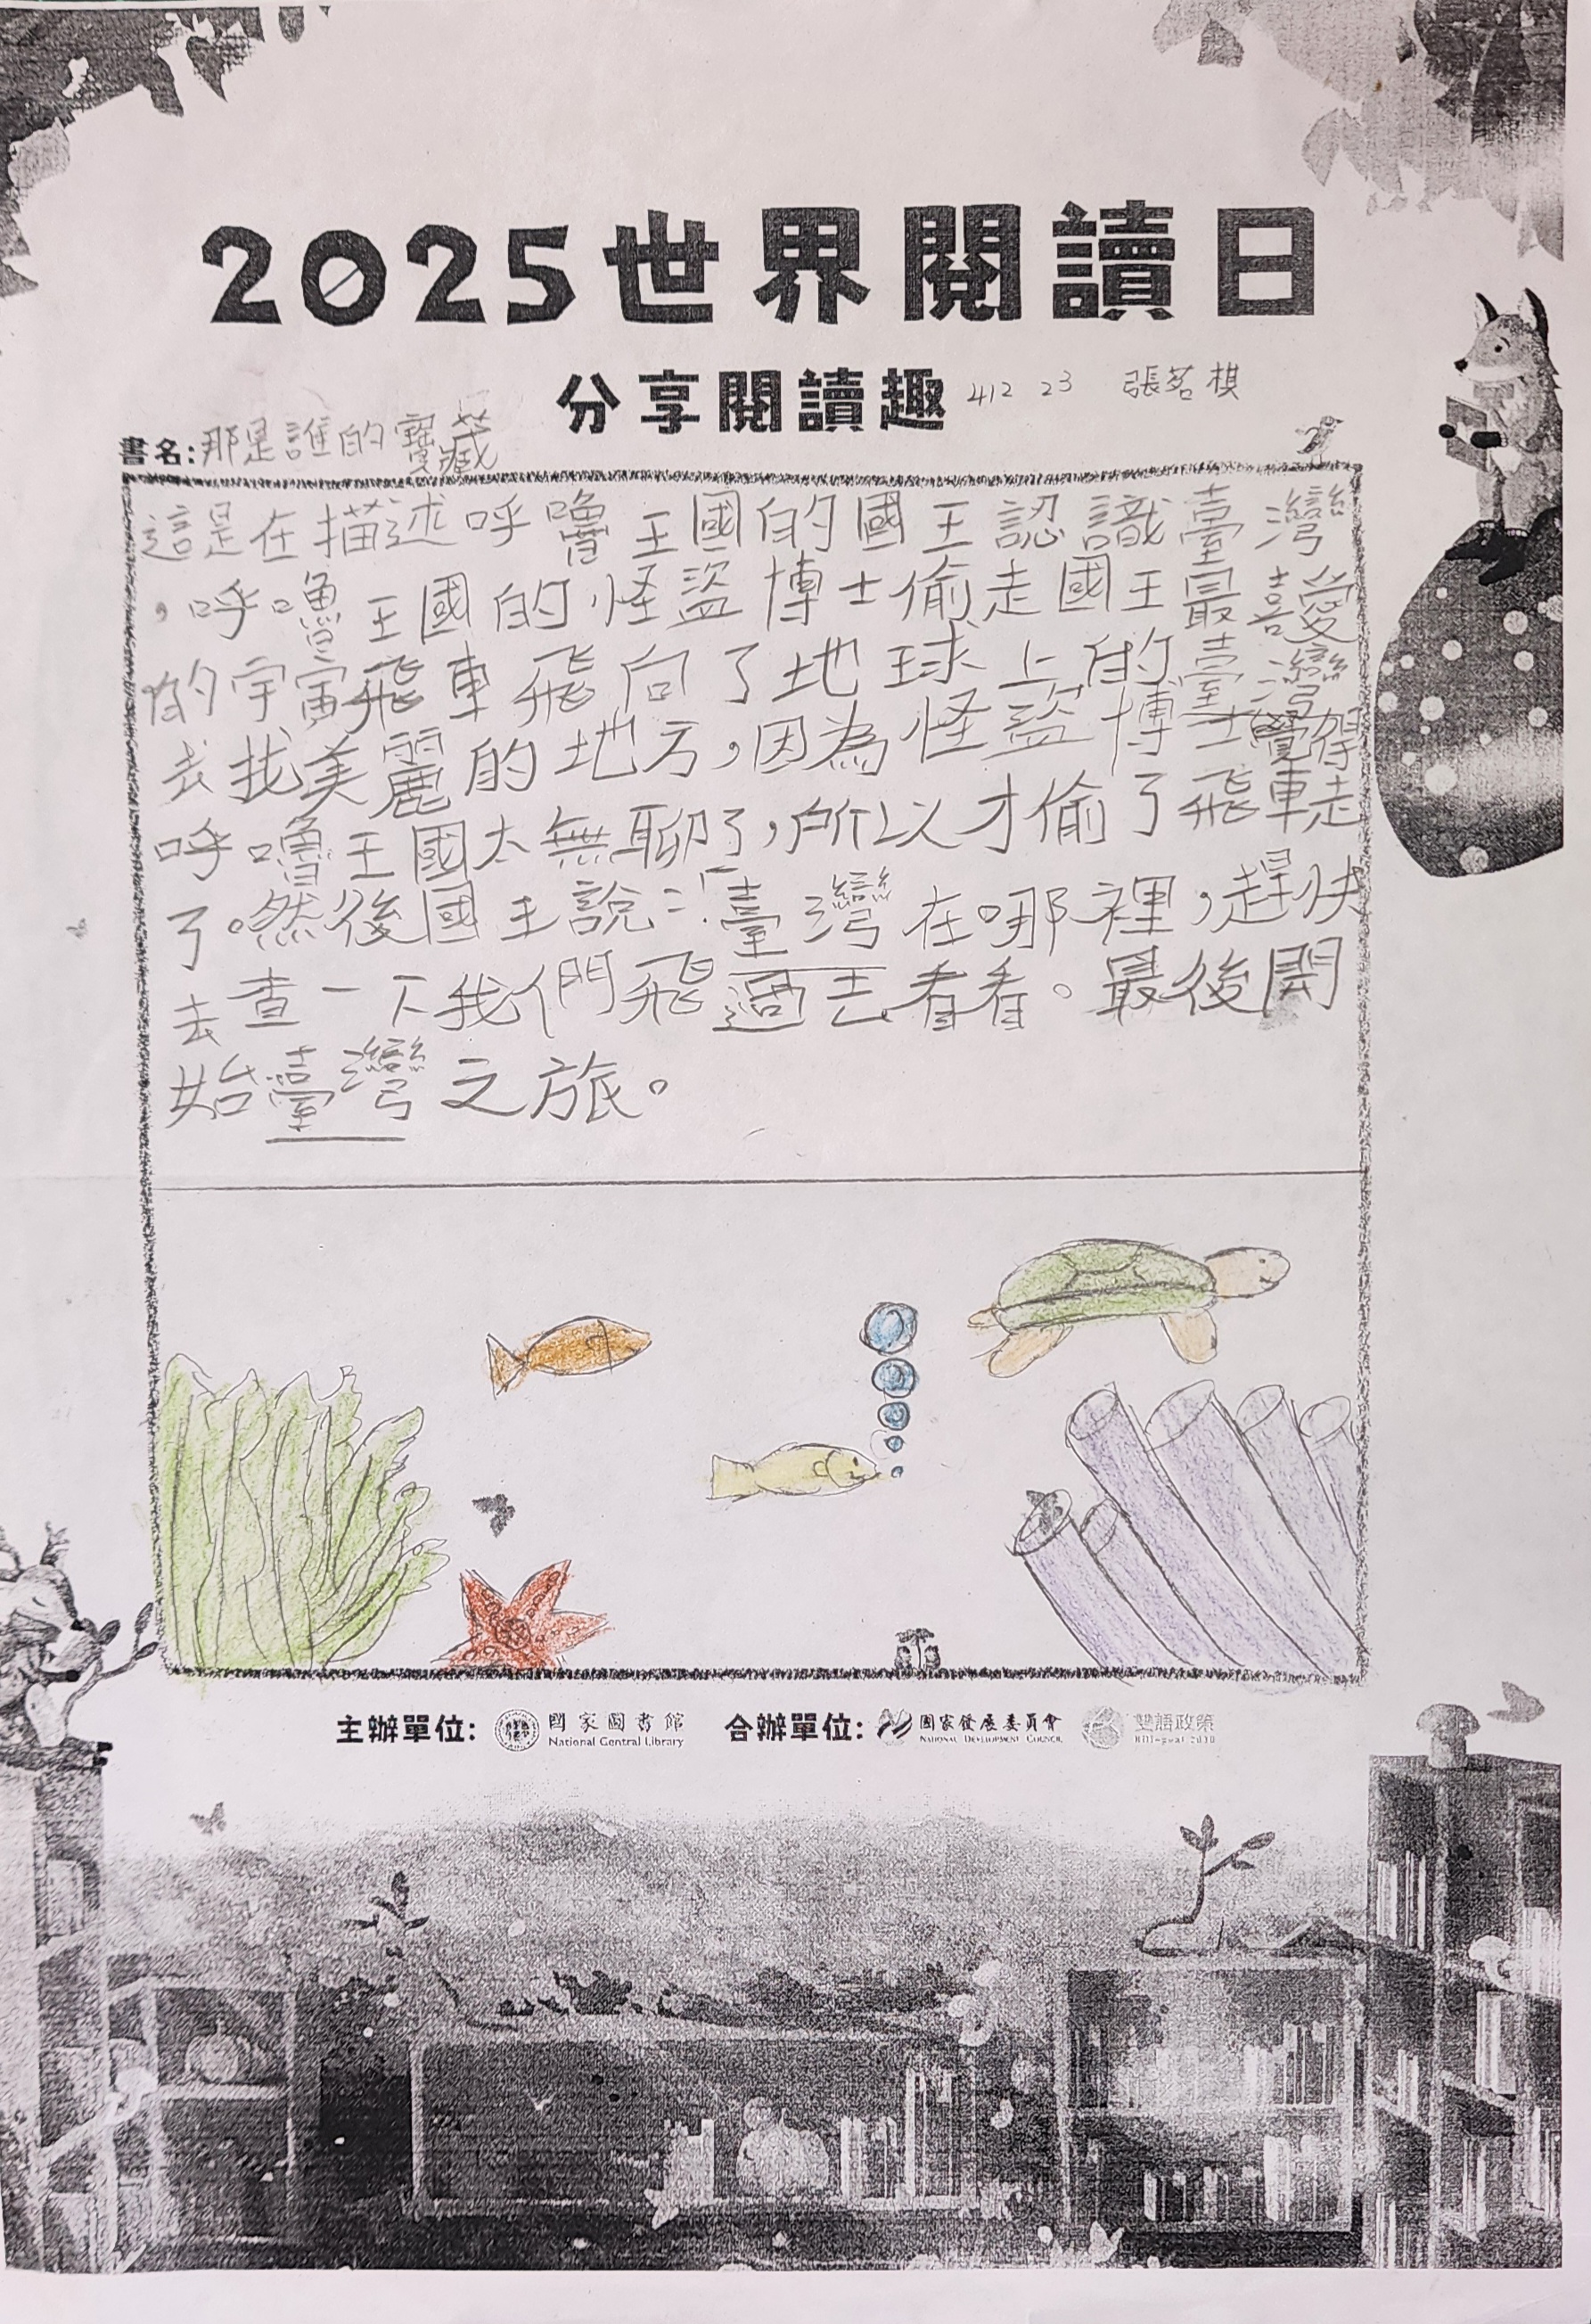 2025世界閱讀日
分享閱讀趣 412 23 張茗棋
書名:那是誰的寶藏
這是在描述呼嚕王國的國王認識臺灣
，呼嚕王國的怪盜博士偷走國王最喜愛
的宇宙飛車飛向了地球上的臺灣
去找美麗的地方，因為怪盜博士覺得
呼嚕王國太無聊了，所以才偷了飛車走
了。然後國王說：「臺灣在哪裡，趕快
去查一下我們飛過去看看。最後開
始臺灣之旅。
主辦單位: 國家圖書館 合辦單位: 國家發展委員會 雙語政策
National Central Library NATIONAL DEVELOPMENT COUNCIL